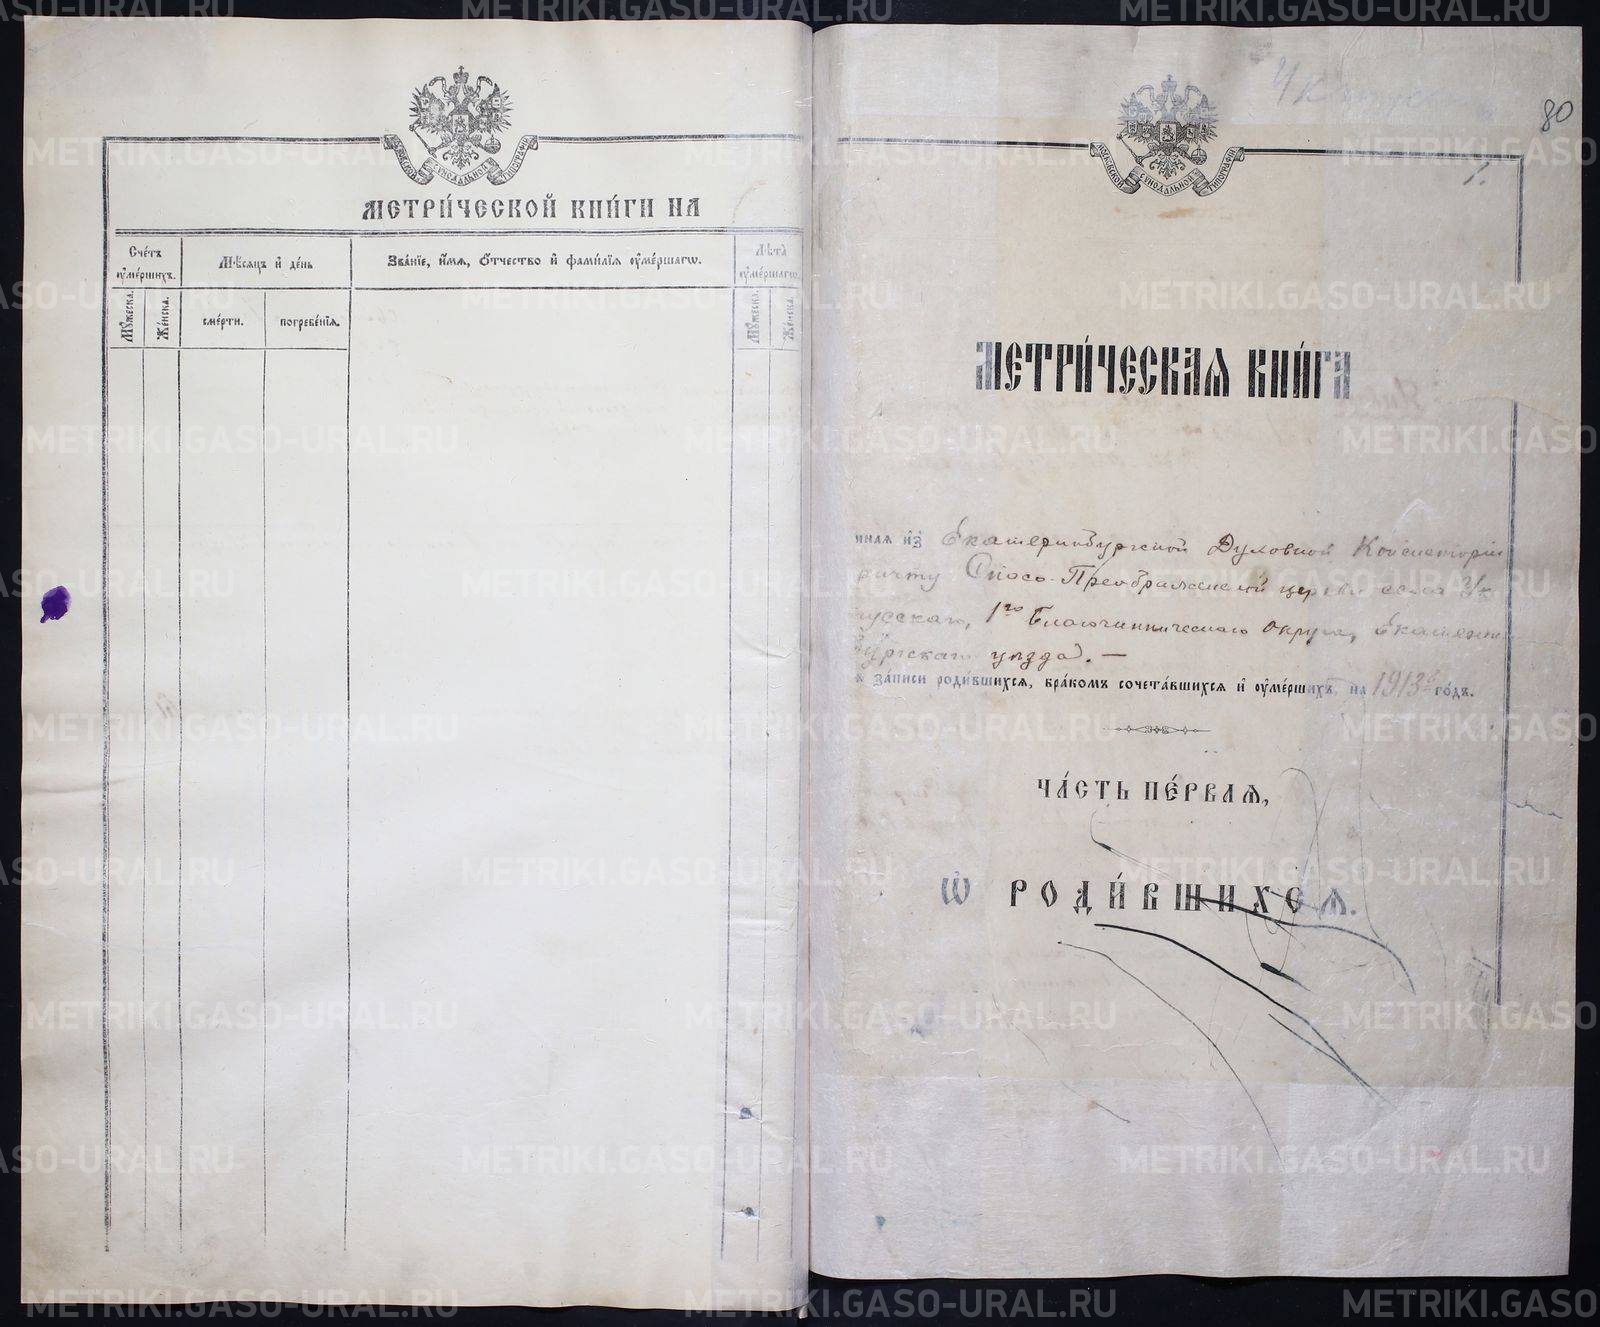 МОСКОВСКОЙ СѴНОДАЛЬНОЙ ТИПОГРАФІИ
МЕТРИ́ЧЕСКОЙ КНИ́ГИ НА
Сче́тъ оу҆ме́ршихъ.
Мѣ́сяцъ и҆ де́нь
Зва́нїе, и҆́мѧ, ѻ҆́тчество и҆ фами́лїѧ оу҆ме́ршагѡ.
Лѣ́та оу҆ме́ршагѡ
Мꙋ́жеска.
Же́нска.
сме́рти.
погребе́нїѧ.
Мꙋ́жеска.
Же́нска.
80
МОСКОВСКОЙ СѴНОДАЛЬНОЙ ТИПОГРАФІИ
1.
МЕТРИ́ЧЕСКАѦ КНИ́ГА
ннаѧ и҆з̾ Екатеринбургской Духовной Консисторіи
ричту Спасо-Преображенской церкви села Ук
тусскаго, 1го Благочинническаго округа, Екатерин
бургскаго уѣзда. —
ѧ за́писи роди́вшихсѧ, бра́комъ сочета́вшихсѧ и҆ оу҆ме́ршихъ, на 1913й го́дъ.
ЧА́СТЬ ПЕ́РВАѦ,
Ѡ҆ РОДИ́ВШИХСѦ.
METRIKI.GASO-URAL.RU